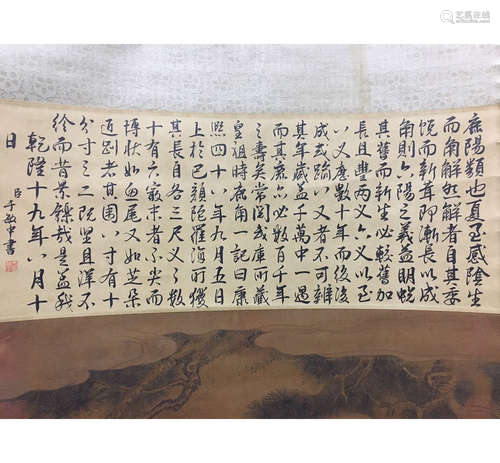 艺狐在线
鹿陽類也夏至感陰生
而角解然解者自其委
蛻而新茸即漸長以成
角則六陽之義益明蛻
其舊而新生必較舊加
長且豐兩又六又以至
八又應數十年而後
成或疏以又者不可辨
其年歲蓋千萬中一遇
而其鹿亦必數百千年
之壽矣常閱武庫所藏
皇祖時鹿角一記曰康
熙四十八年九月五日
上於巴顏陀羅海所獲
其長自各三尺又數
十有六最末者不尖而
博狀如魚尾又如芝朵
近別者其圍八寸有十
分寸之二既堅且澤不
而昔景鑠哉是蓋我
乾隆十九年八月十
日
臣于敏中書